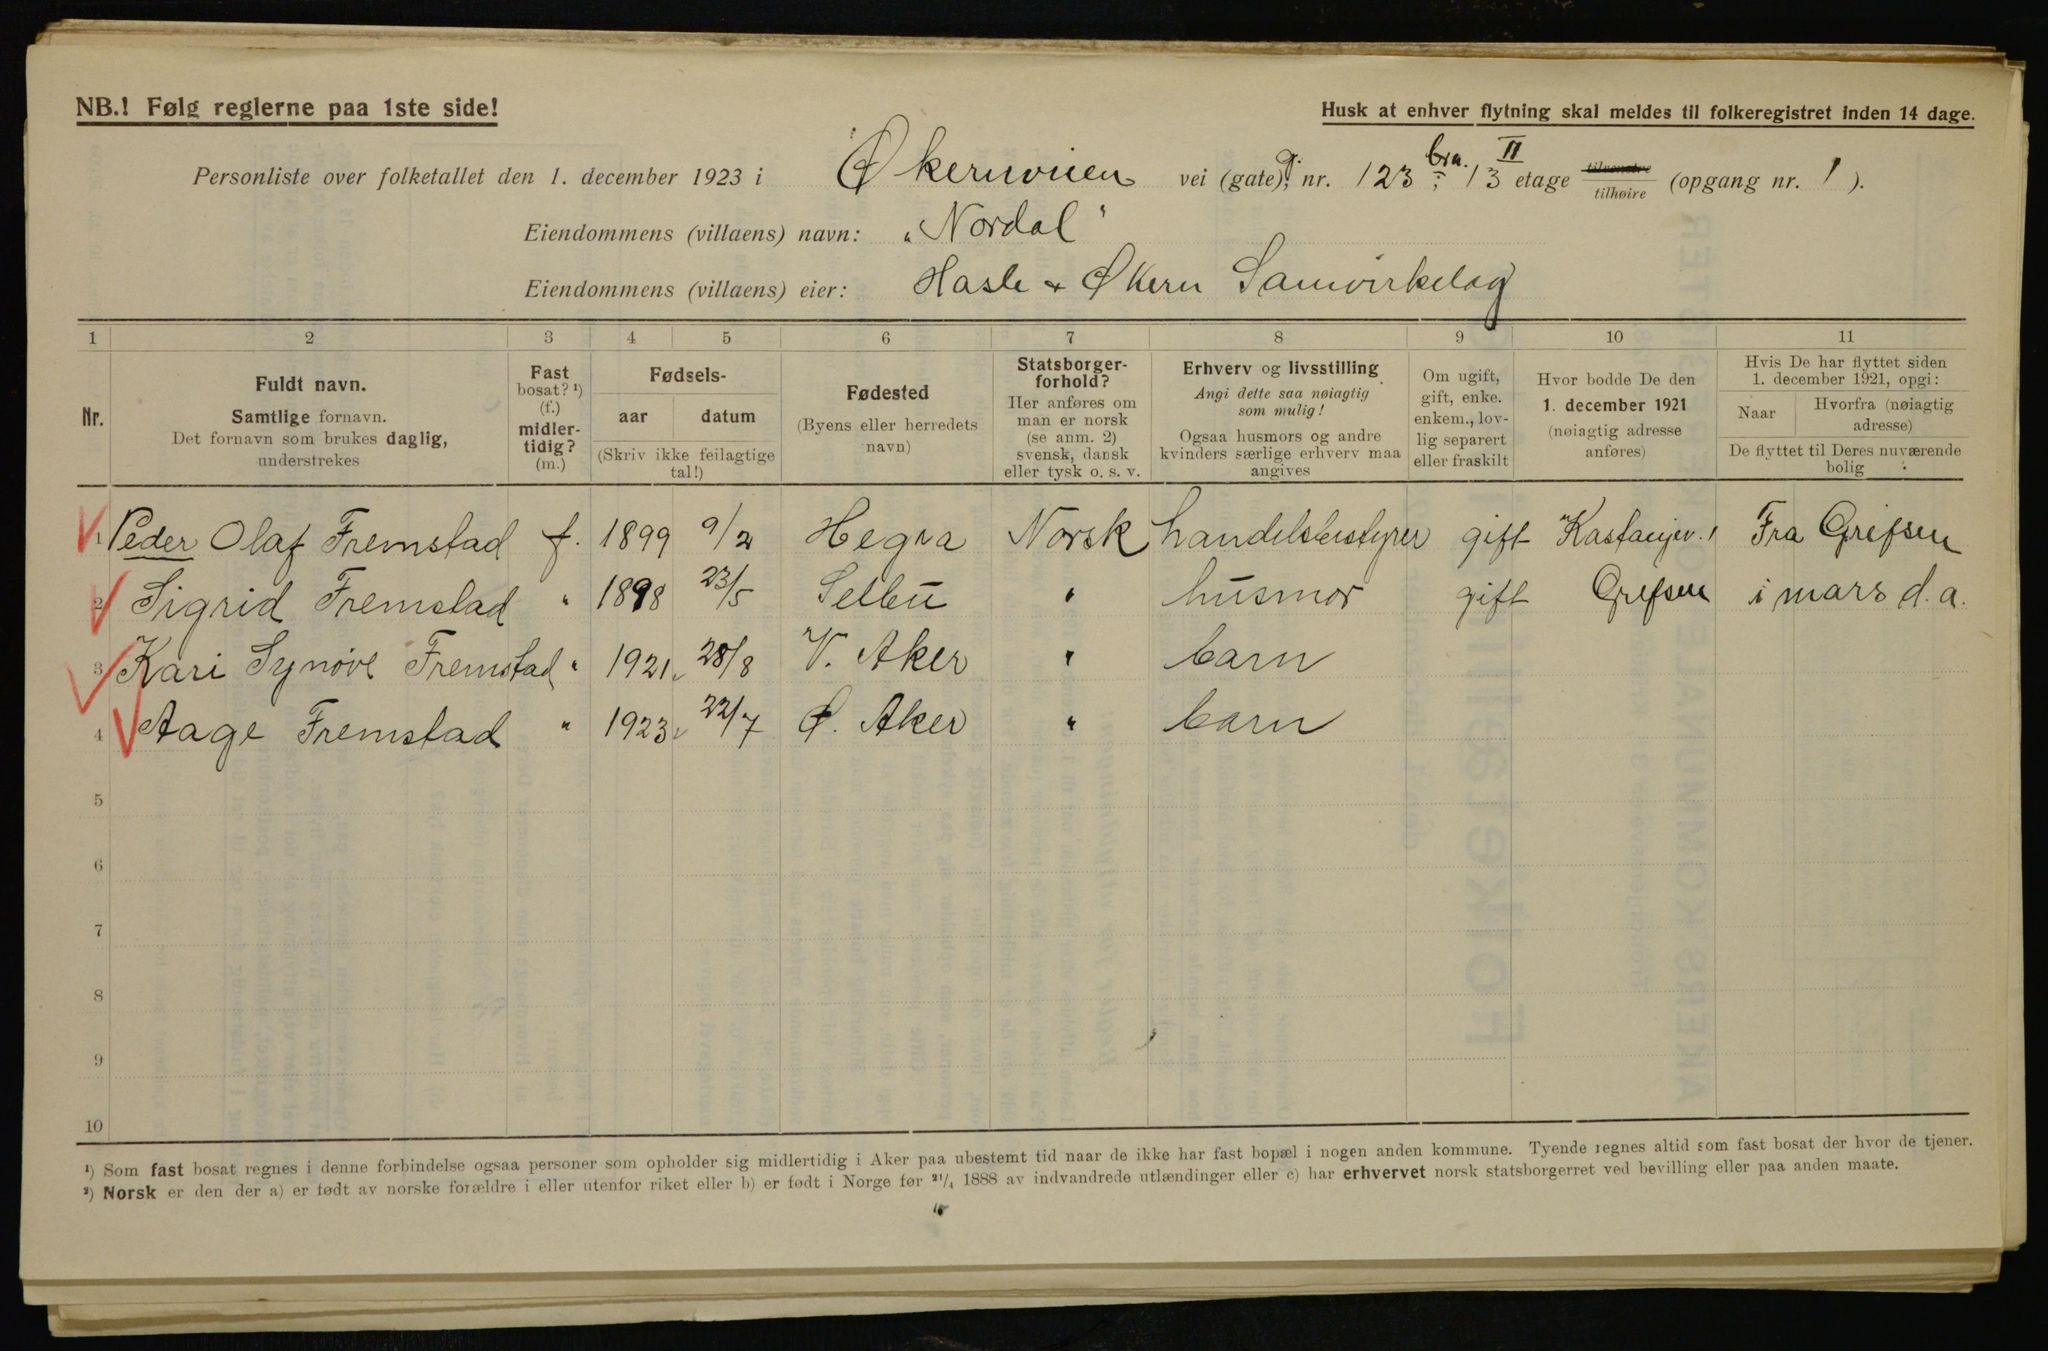 NB.! Følg reglerne paa 1ste side!
Husk at enhver flytning skal meldes til folkeregistret inden 14 dage.
Personliste over folketallet den 1. december 1923 i Økernveien vei (gate) g. nr. 123; bra. 13 II etage tilvenstre tilhøire (opgang nr. 1).
Eiendommens (villaens) navn: "Nordal"
Eiendommens (villaens) eier: Hasle & Økern Samvirkelag
1 2 3 4 5 6 7 8 9 10 11
Nr.
Fuldt navn.
Samtlige fornavn.
Det fornavn som brukes daglig,
understrekes
Fast
bosat? ¹)
(f.)
midler-
tidig?
(m.)
Fødsels-
aar datum
(Skriv ikke feilagtige
tal!)
Fødested
(Byens eller herredets
navn)
Statsborger-
forhold?
Her anføres om
man er norsk
(se anm. 2)
svensk, dansk
eller tysk o. s. v.
Erhverv og livsstilling
Angi dette saa nøiagtig
som mulig!
Ogsaa husmors og andre
kvinders særlige erhverv maa
angives
Om ugift,
gift, enke.
enkem., lov-
lig separert
eller fraskilt
Hvor bodde De den
1. december 1921
(nøiagtig adresse
anføres)
Hvis De har flyttet siden
1. december 1921, opgi:
Naar Hvorfra (nøiagtig
adresse)
De flyttet til Deres nuværende
bolig
1 Peder Olaf Fremstad f. 1899 9/2 Hegra Norsk handelsbestyrer gift Kastanjev. 1 Fra Grefsen
2 Sigrid Fremstad " 1898 23/5 Selbu " husmor gift Grefsen i mars d.a.
3 Kari Synøve Fremstad " 1921 28/8 V. Aker " barn
4 Aage Fremstad " 1923 22/7 Ø. Aker " barn
5
6
7
8
9
10
¹) Som fast bosat regnes i denne forbindelse ogsaa personer som opholder sig midlertidig i Aker paa ubestemt tid naar de ikke har fast bopæl i nogen anden kommune. Tyende regnes altid som fast bosat der hvor de tjener.
²) Norsk er den der a) er født av norske forældre i eller utenfor riket eller b) er født i Norge før ²¹/₄ 1888 av indvandrede utlændinger eller c) har erhvervet norsk statsborgerret ved bevilling eller paa anden maate.